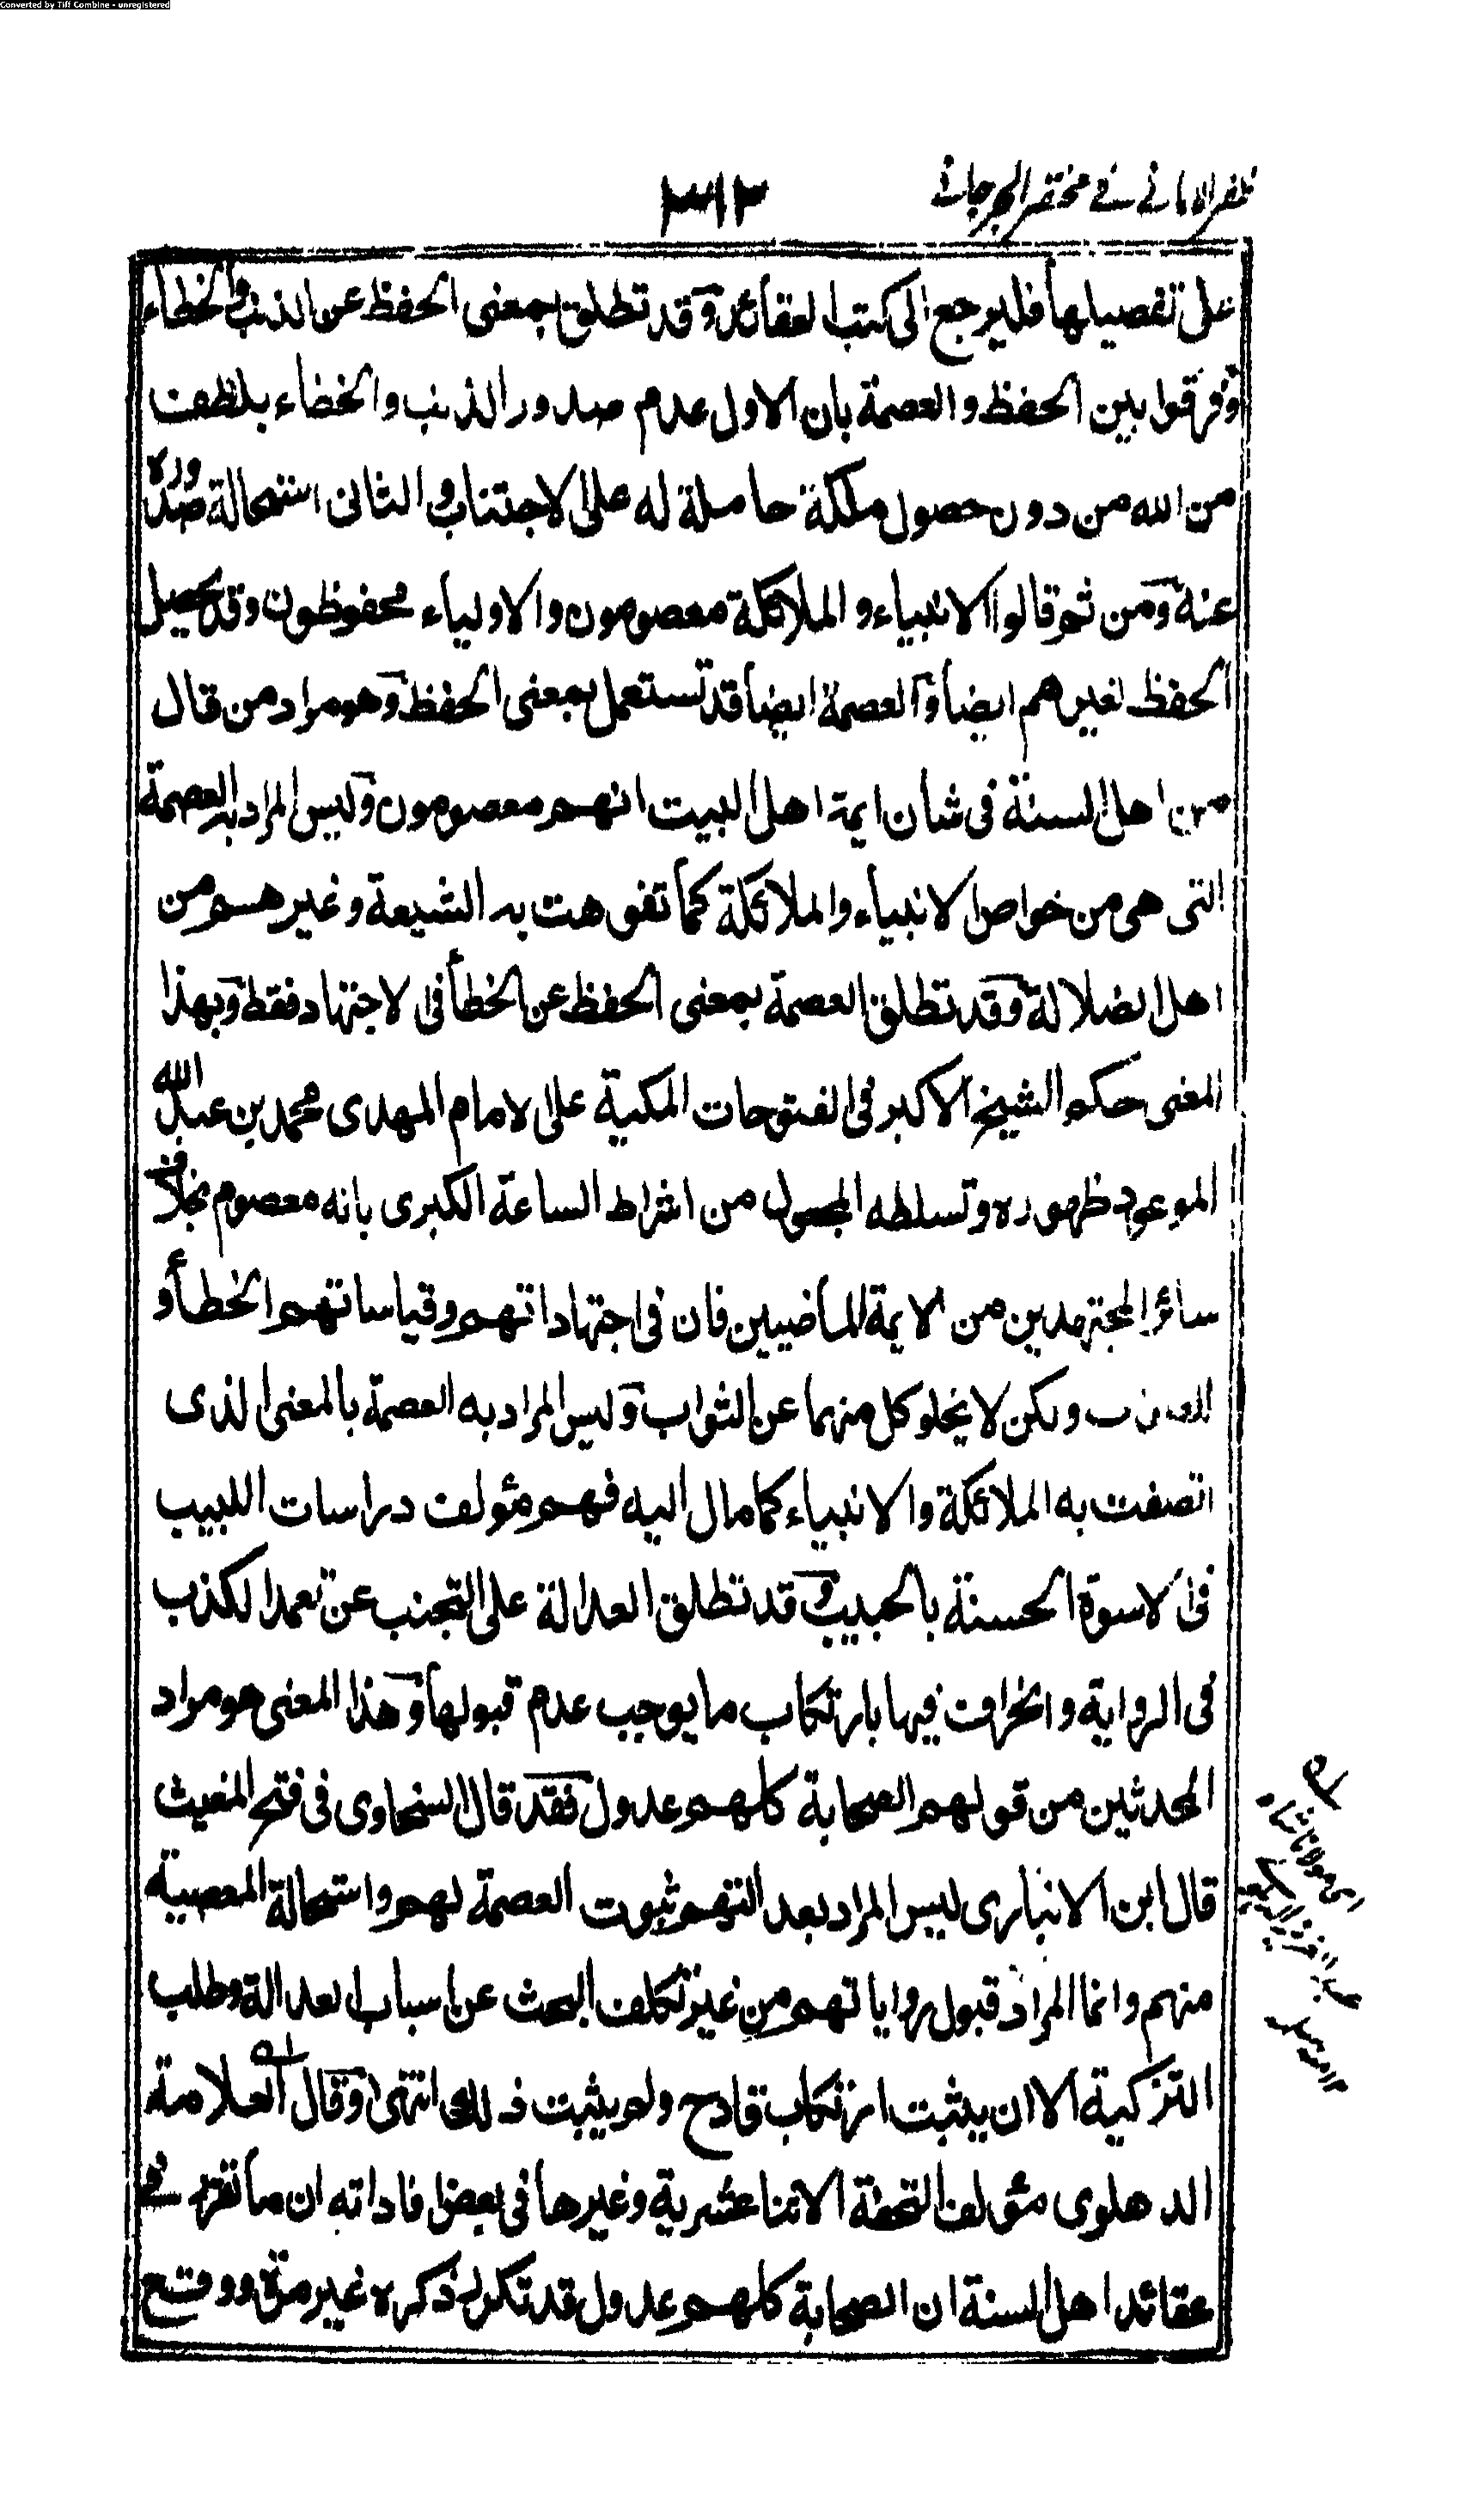 Converted by Tiff Combine - unregistered
ظفر الامانى فى مختصر الجرجانى
٣١٢
على تفصيلها فليرجع الى كتب العقائد وقد تطلق بمعنى الحفظ عن الذنب والخطاء
وفرقوا بين الحفظ والعصمة بان الاول عدم صدور الذنب والخطاء بلطف
من الله من دون حصول ملكة حاملة له على الاجتناب والثانى استحالة صدوره
عنه ومن ثم قالوا الانبياء والملائكة معصومون والاولياء محفوظون وقد يحصل
الحفظ لغيرهم ايضا والعصمة ايضا قد تستعمل بمعنى الحفظ وهو مراد من قال
من اهل السنة فى شان ايمة اهل البيت انهم معصومون وليس المراد به العصمة
التى هى من خواص الانبياء والملائكة كما تفوهت به الشيعة وغيرهم من
اهل الضلالة وقد تطلق العصمة بمعنى الحفظ عن الخطأ فى الاجتهاد فقط وبهذا
المعنى حكم الشيخ الاكبر فى الفتوحات المكية على الامام المهدى محمد بن عبد الله
الموعود ظهوره وتسلطه من اشراط الساعة الكبرى بانه معصوم بخلاف
سائر المجتهدين من الايمة الماضيين فان فى اجتهاداتهم وقياساتهم الخطأ و
الصواب ولكن لا يخلو كل منهما عن الثواب وليس المراد به العصمة بالمعنى الذى
اتصفت به الملائكة والانبياء كما مال اليه فهم مؤلف دراسات اللبيب
فى الاسوة الحسنة بالحبيب وقد تطلق العدالة على التجنب عن تعمد الكذب
فى الرواية وانحراف فيها بارتكاب ما يوجب عدم قبولها وهذا المعنى هو مراد
المحدثين من قولهم الصحابة كلهم عدول فقد قال السخاوى فى فتح المغيث
قال ابن الانبارى ليس المراد بعدالتهم ثبوت العصمة لهم واستحالة المعصية
منهم وانما المراد قبول رواياتهم من غير تكلف البحث عن اسباب العدالة وطلب
التزكية الا ان يثبت ارتكاب قادح ولم يثبت ذلك انتهى وقال العلامة
الدهلوى مؤلف التحفة الاثنا عشرية وغيرها فى بعض افاداته ان ما تقرر فى
عقائد اهل السنة ان الصحابة كلهم عدول قد تكرر ذكره غير مرة ووقع